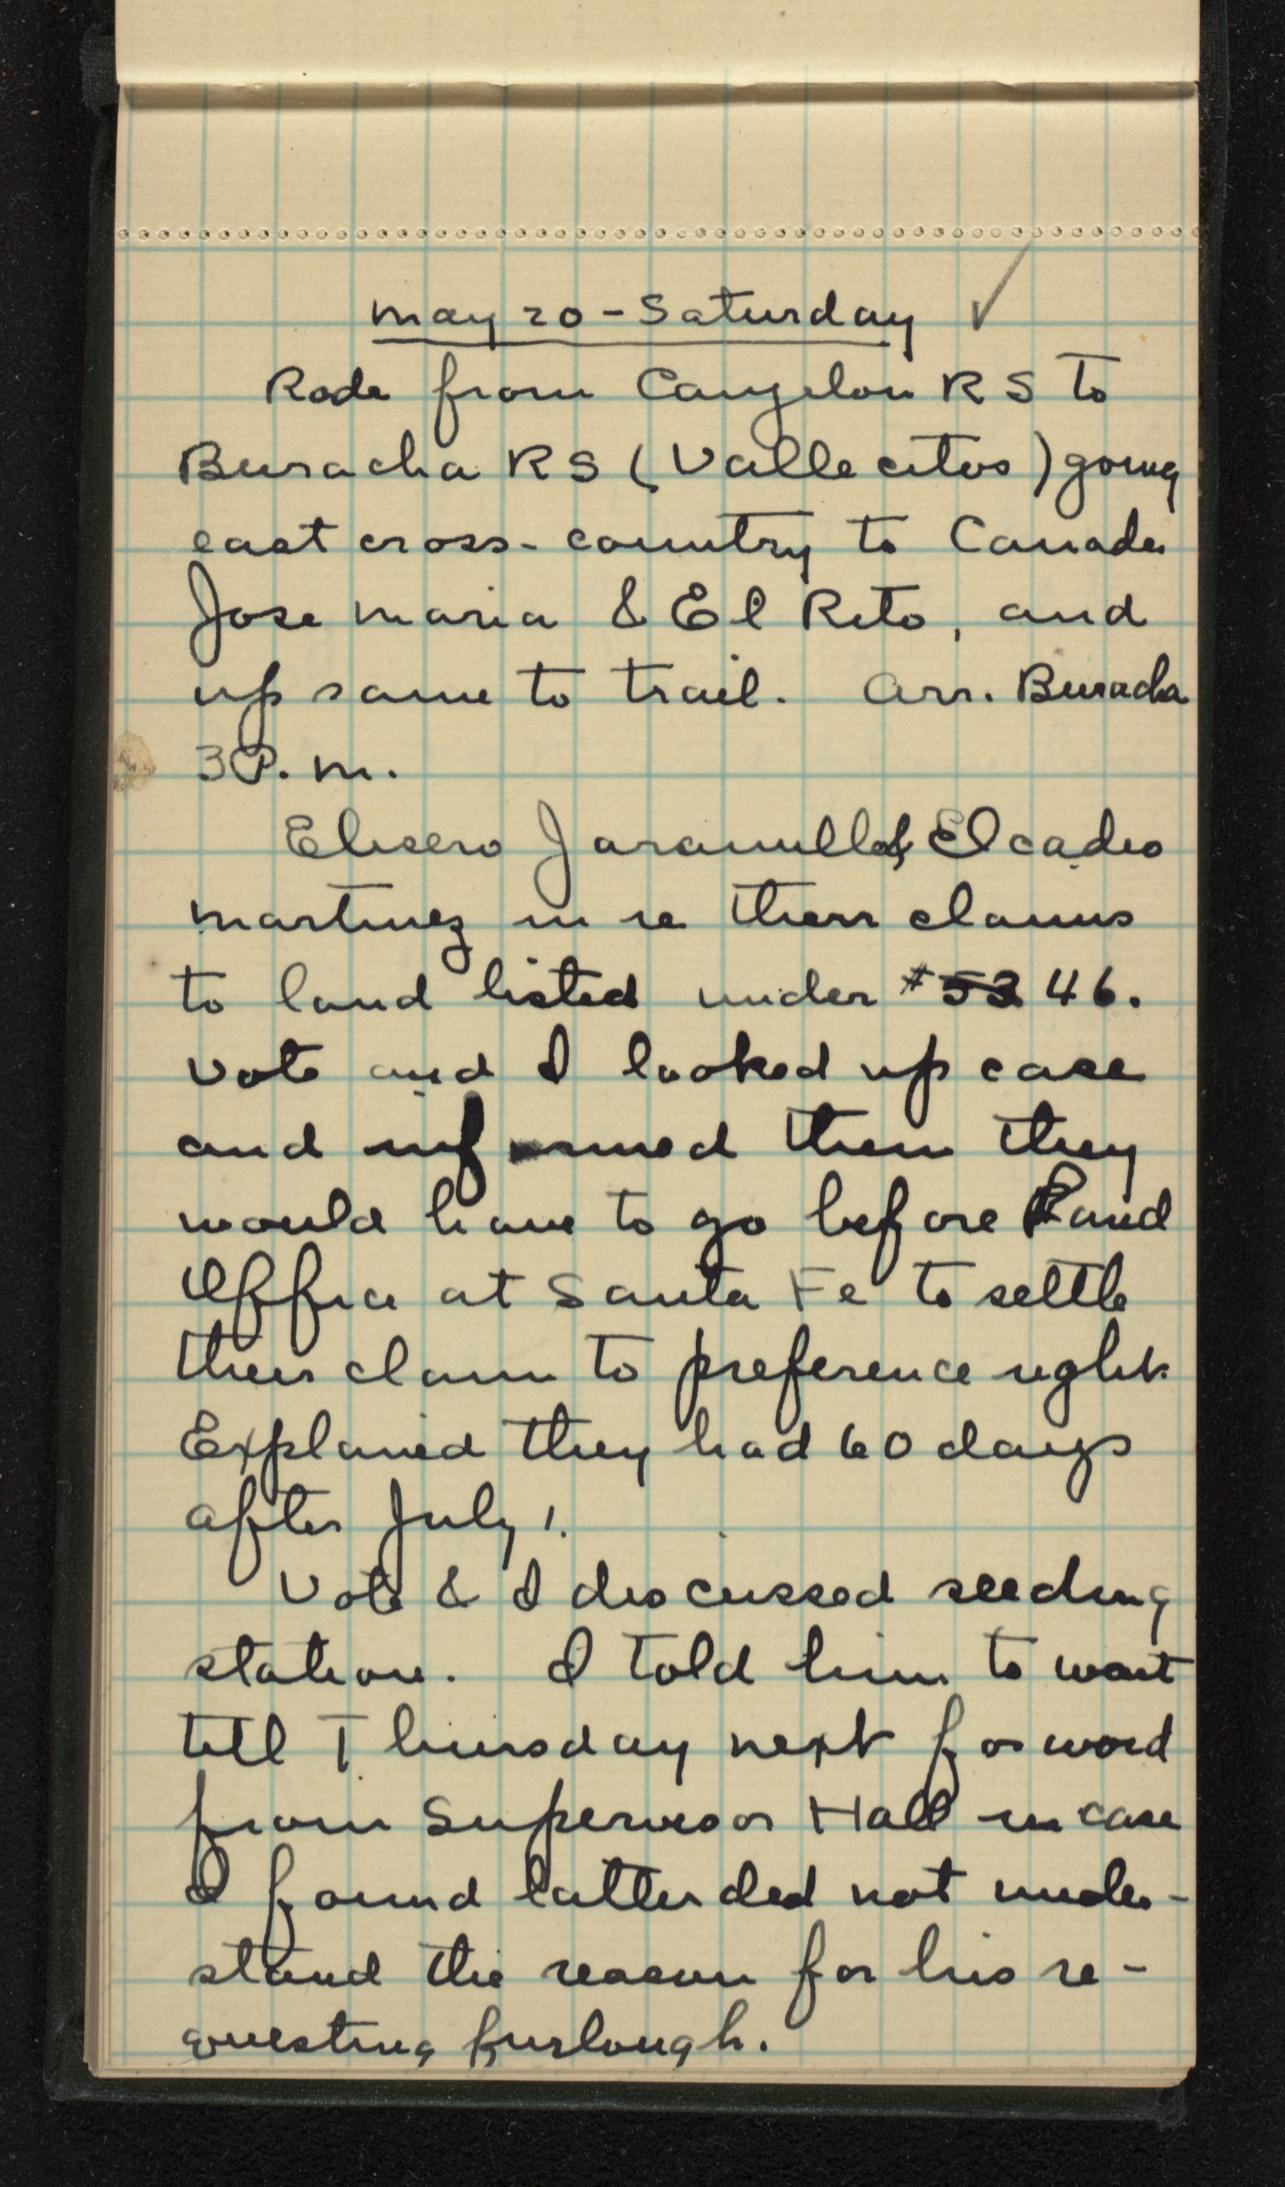 May 20 - Saturday ✓
Rode from Canjelon RS to
Buracha RS (Vallecitos) going
east cross-country to Canada
Jose Maria & El Rito, and
up same to trail. Arr. Buracha
3 P.M.
Elisero Jaramillo & Elcadio
Martinez in re their claims
to land listed under # 53 46.
Vote and I looked up case
and informed them they
would have to go before Land
Office at Santa Fe to settle
their claim to preference right.
Explained they had 60 days
after July 1.
Vote & I discussed seeding
station. I told him to wait
till Thursday next for word
from Supervisor Hall in case
I found latter did not under-
stand the reason for his re-
questing furlough.